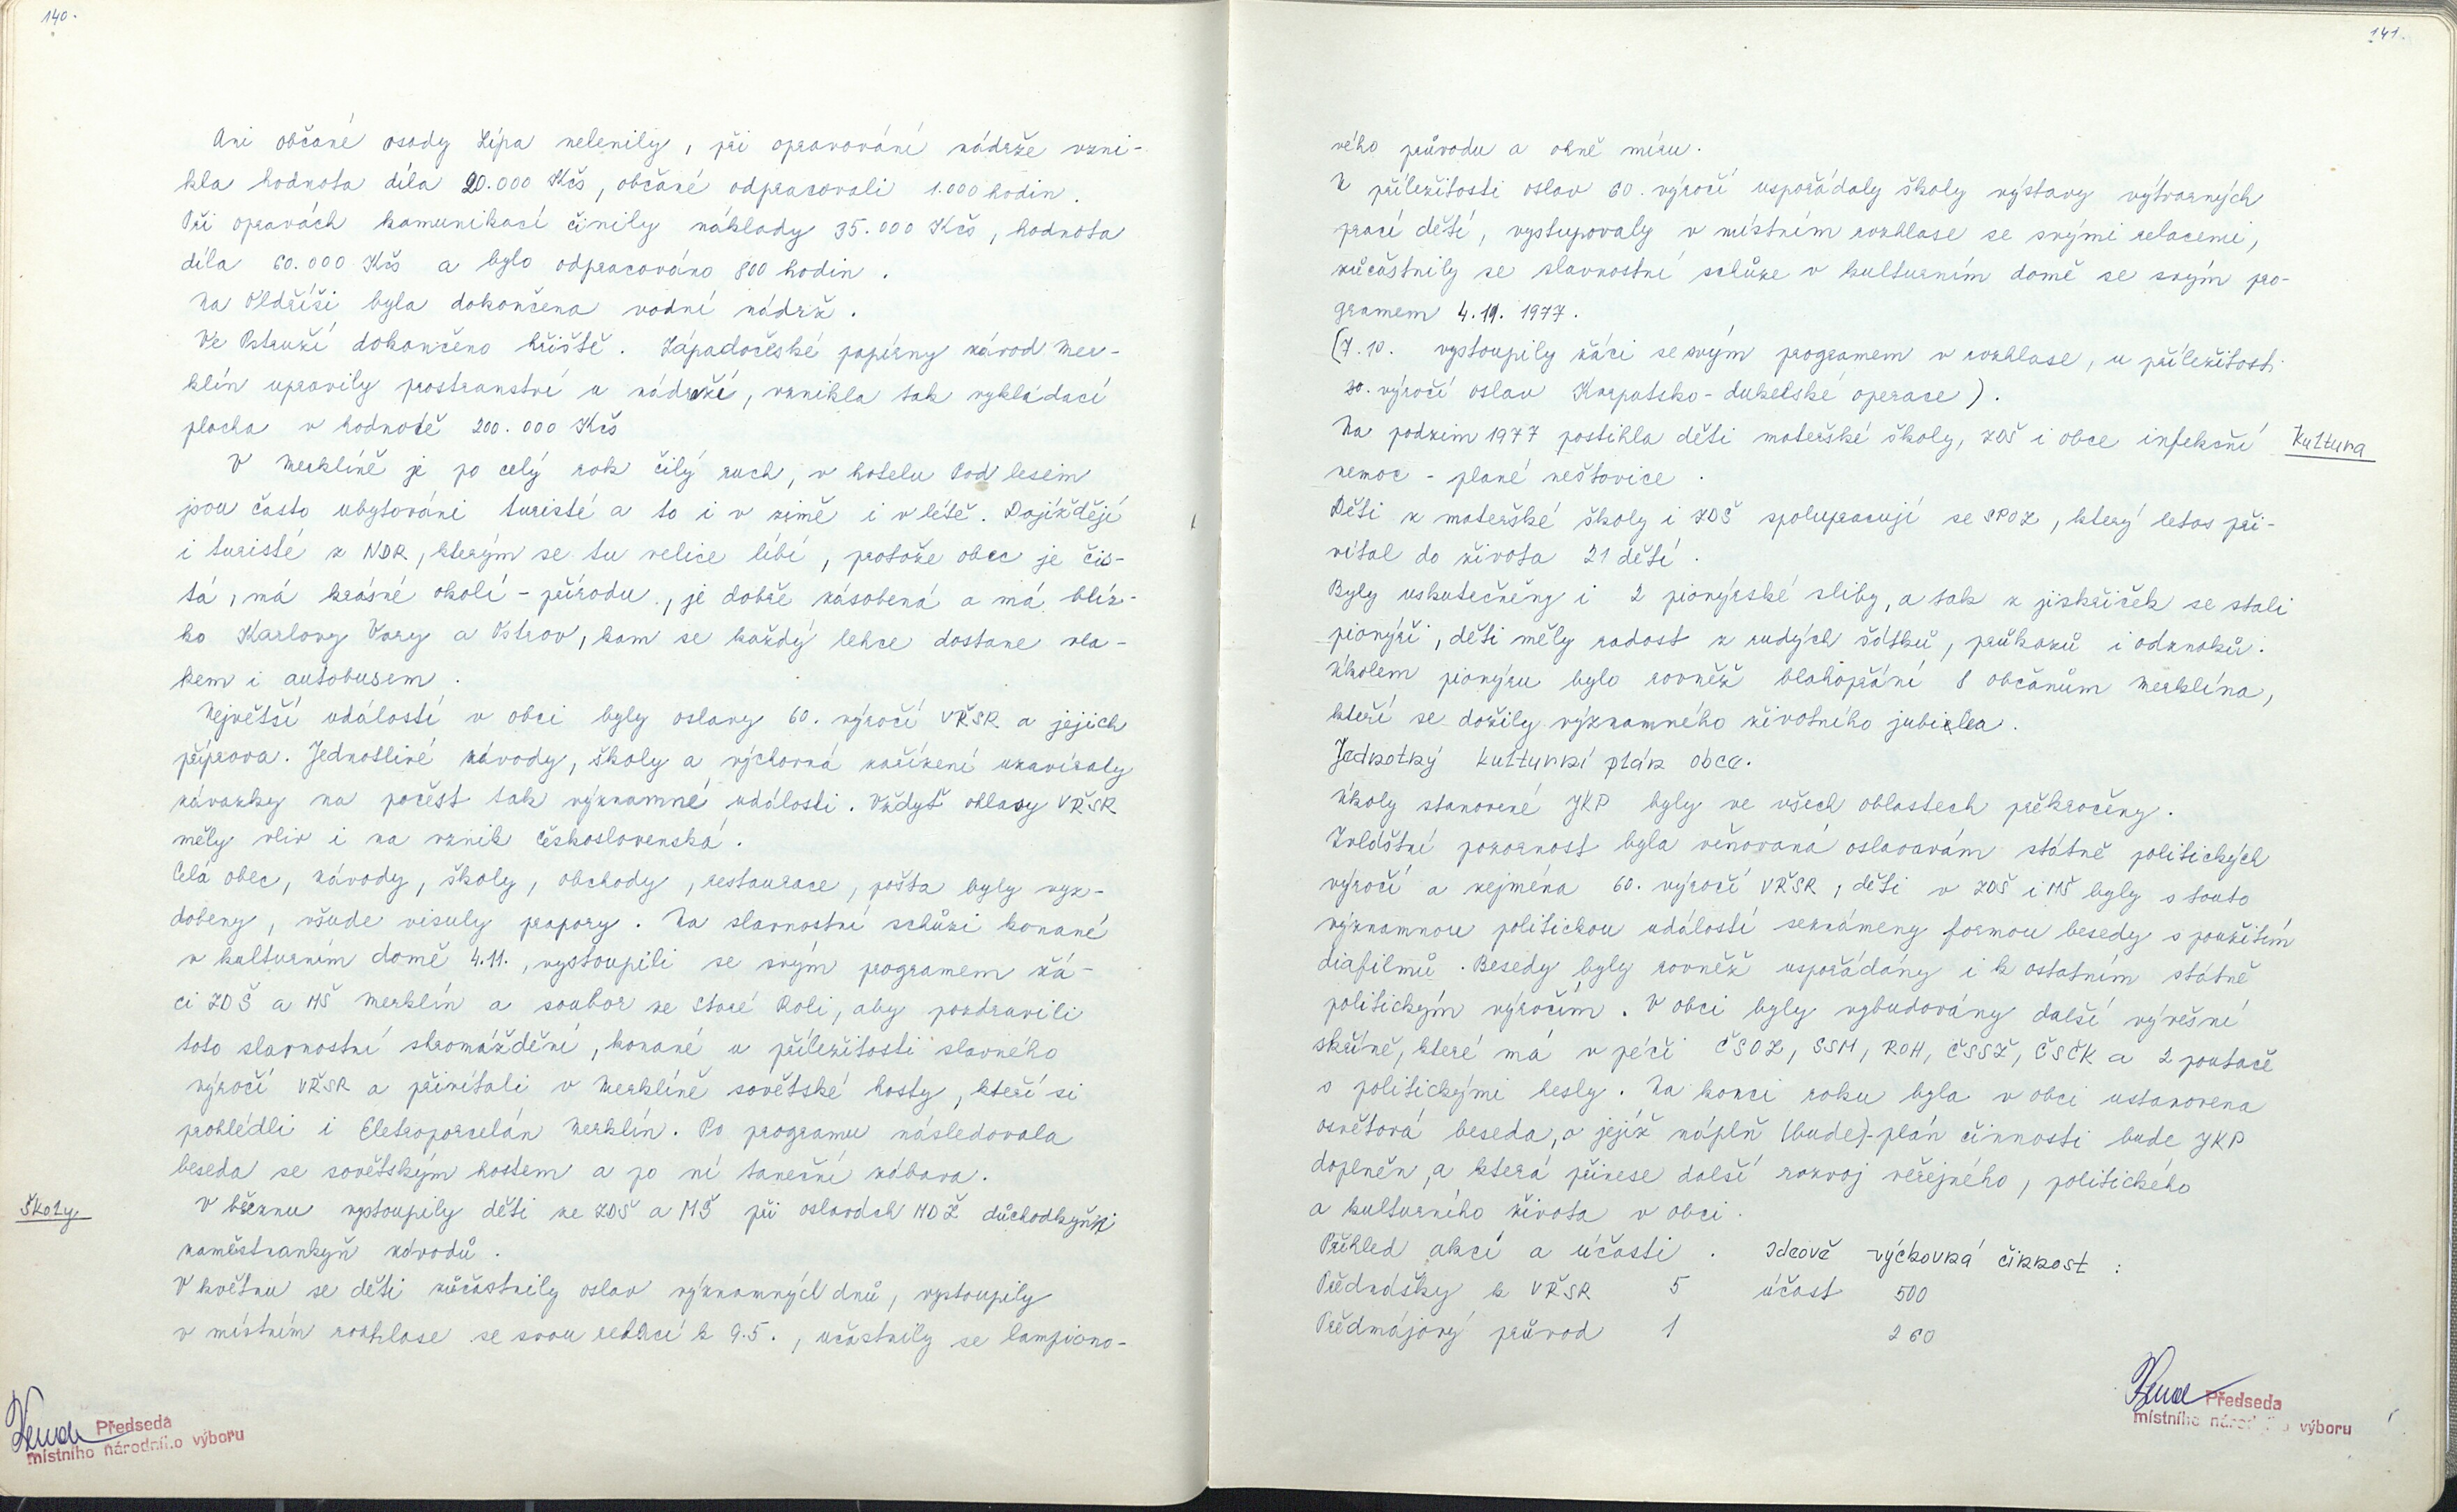 140.
Ani občané osady Lípa nelenily, při opravování nádrže vzni-
kla hodnota díla 20.000 Kčs, občané odpracovali 1.000 hodin.
Při opravách komunikací činily náklady 35.000 Kčs, hodnota
díla 60.000 Kčs a bylo odpracováno 800 hodin.
Na Oldříši byla dokončena vodní nádrž.
Ve Pstruží dokončeno hřiště. Západočeské papírny závod Mer-
klín upravily prostranství u nádraží, vznikla tak vykládací
plocha v hodnotě 200.000 Kčs
V Merklíně je po celý rok čilý ruch, v hotelu Pod lesem
jsou často ubytováni turisté a to i v zimě i v létě. Dojíždějí
i turisté z NDR, kterým se tu velice líbí, protože obec je čis-
tá, má krásné okolí - přírodu, je dobře zásobená a má blíz-
ko Karlovy Vary a Ostrov, kam se každý lehce dostane vla-
kem i autobusem.
Největší událostí v obci byly oslavy 60. výročí VŘSR a jejich
příprava. Jednotlivé závody, školy a výchovná zařízení uzavíraly
závazky na počest tak významné události. Vždyť ohlasy VŘSR
měly vliv i na vznik Československá.
Celá obec, závody, školy, obchody, restaurace, pošta byly vyz-
dobeny, všude visuly prapory. Na slavnostní schůzi konané
v kulturním domě 4.11., vystoupili se svým programem žá-
ci ZDŠ a MŠ Merklín a soubor ze Staré Roli, aby pozdravili
toto slavnostní shromáždění, konané u příležitosti slavného
výročí VŘSR a přivítali v Merklíně sovětské hosty, kteří si
prohlédli i Eletroporcelán Merklín. Po programu následovala
beseda se sovětským hostem a po ní taneční zábava.
Školy
V březnu vystoupily děti ze ZDŠ a MŠ při oslavách MDŽ důchodkyň
zaměstnankyň závodů.
V květnu se děti zúčastnily oslav významných dnů, vystoupily
v místním rozhlase se svou relací k 9.5., učastnily se lampiono-
Předseda
místního národního výboru
141.
vého průvodu a ohně míru.
U příležitosti oslav 60. výročí uspořádaly školy výstavy výtvarných
prací dětí, vystupovaly v místním rozhlase se svými relacemi,
zůčastnily se slavnostní schůze v kulturním domě se svým pro-
gramem 4.11. 1977.
(7.10. vystoupily žáci se svým programem v rozhlase, u příležitosti
30. výročí oslav Karpatsko-dukelské operace).
Na podzim 1977 postihla děti mateřské školy, ZDŠ i obce infekční
Kultura
nemoc - plané neštovice.
Děti z mateřské školy i ZDŠ spolupracují se SPOZ, který letos při-
vítal do života 21 dětí.
Byly uskutečněny i 2 pionýrské sliby, a tak z jiskřiček se stali
pionýři, děti měly radost z rudých šátků, průkazů i odznaků.
Úkolem pionýru bylo rovněž blahopřání 8 občanům Merklína,
kteří se dožily významného životního jubilea.
Jednotný kulturní plán obce.
Úkoly stanovené JKP byly ve všech oblastech překročeny.
Zvláštní pozornost byla věňovaná oslavavám státně politických
výročí a zejména 60. výročí VŘSR, děti v ZDŠ i MŠ byly s touto
významnou politickou událostí seznámeny formou besedy s použitím
diafilmů. Besedy byly rovněž uspořádány i k ostatním státně
politickým výročím. V obci byly vybudovány další vývěsní
skříně, které má v péči ČSOŽ, SSM, ROH, ČSSŽ, ČSČK a 2 poutače
s politickými hesly. Na konci roku byla v obci ustanovena
osvětová beseda, o jejíž náplň (bude)-plán činnosti bude JKP
doplněn, a která přinese další rozvoj veřejného, politického
a kulturního života v obci.
Přehled akcí a účasti. Ideově výchovná činnost:
Přednášky k VŘSR 5 účast 500
Předmájový průvod 1 260
Předseda
místního národního výboru